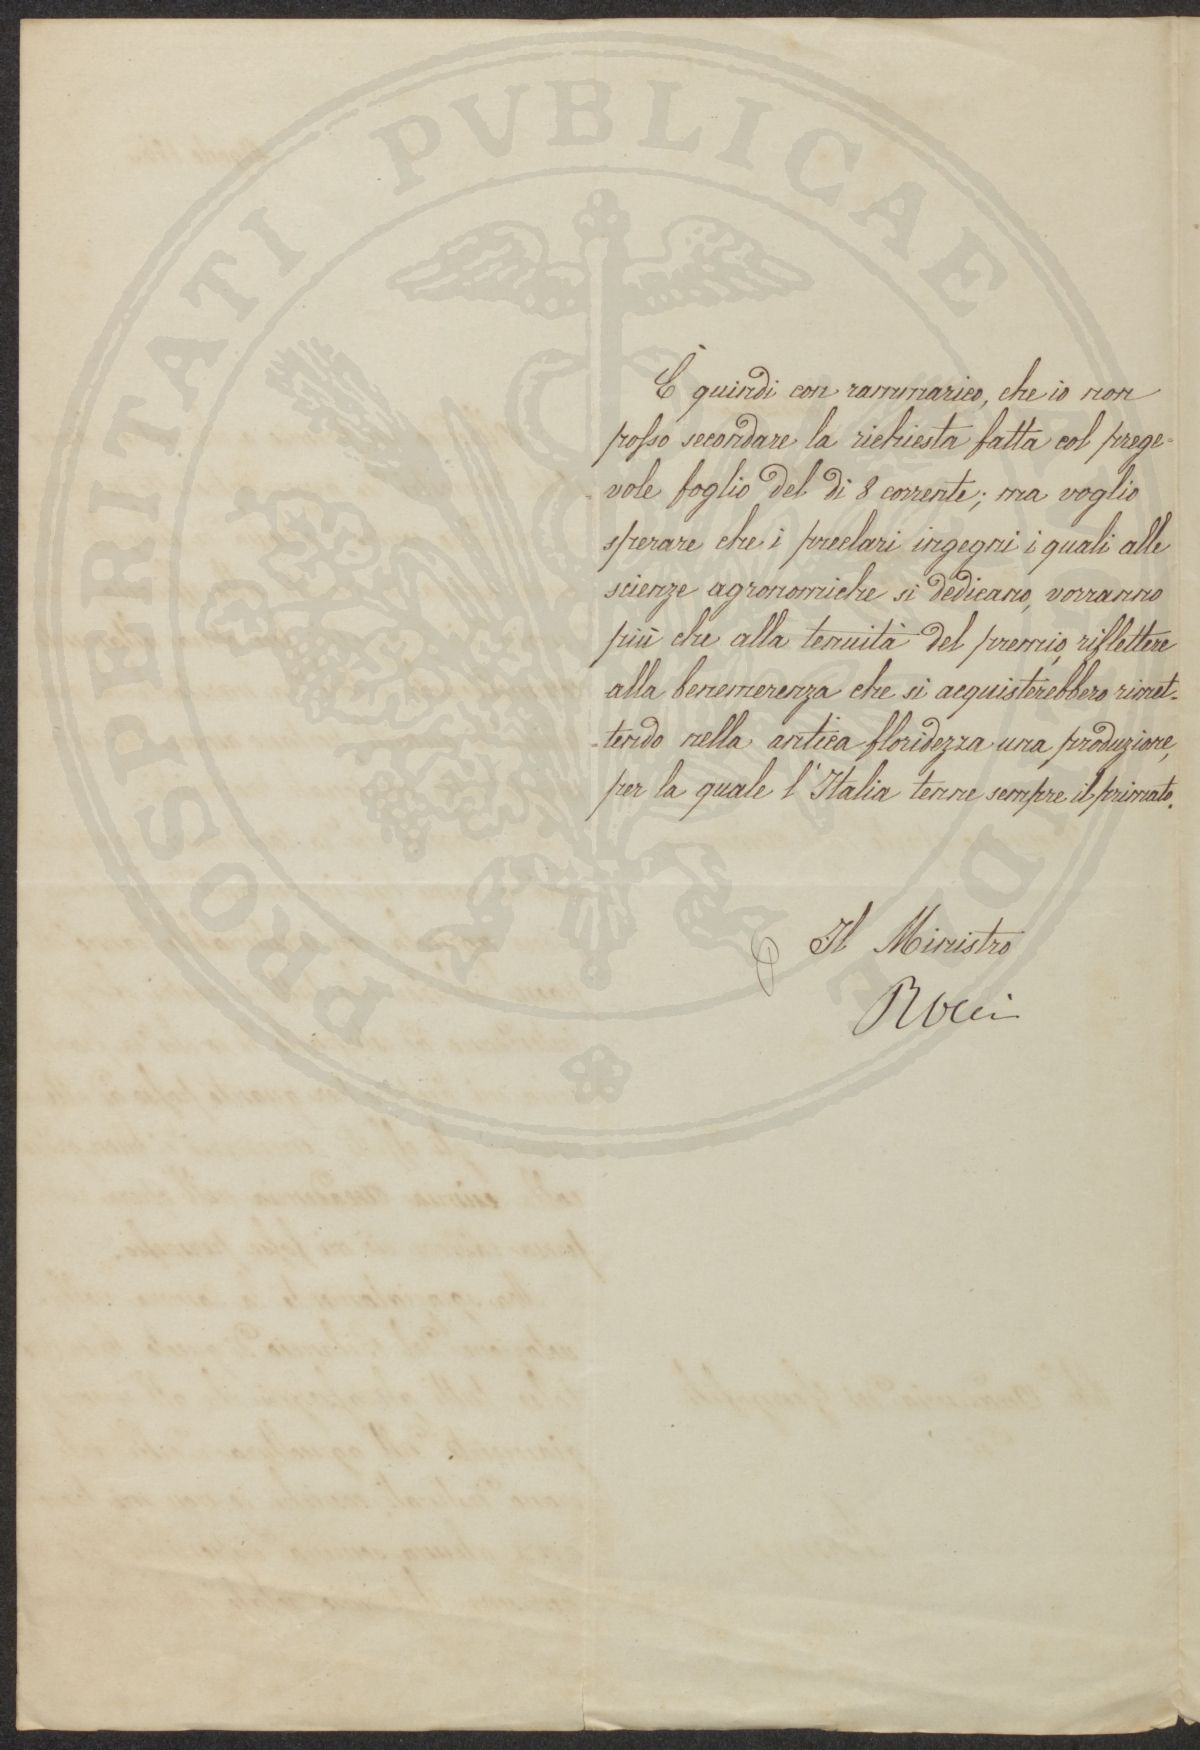 È quindi con rammarico, che io non
posso secondare la richiesta fatta col prege-
vole foglio del dì 8 corrente; ma voglio
sperare che i preclari ingegni i quali alle
scienze agronomiche si dedicano, vorranno
più che alla tenuità del premio, riflettere
alla benemerenza che si acquisterebbero rimet-
tendo nella antica floridezza una produzione,
per la quale l'Italia tenne sempre il primato.
Il Ministro
PROSPERITATI PVBLICAE AVGENDAE